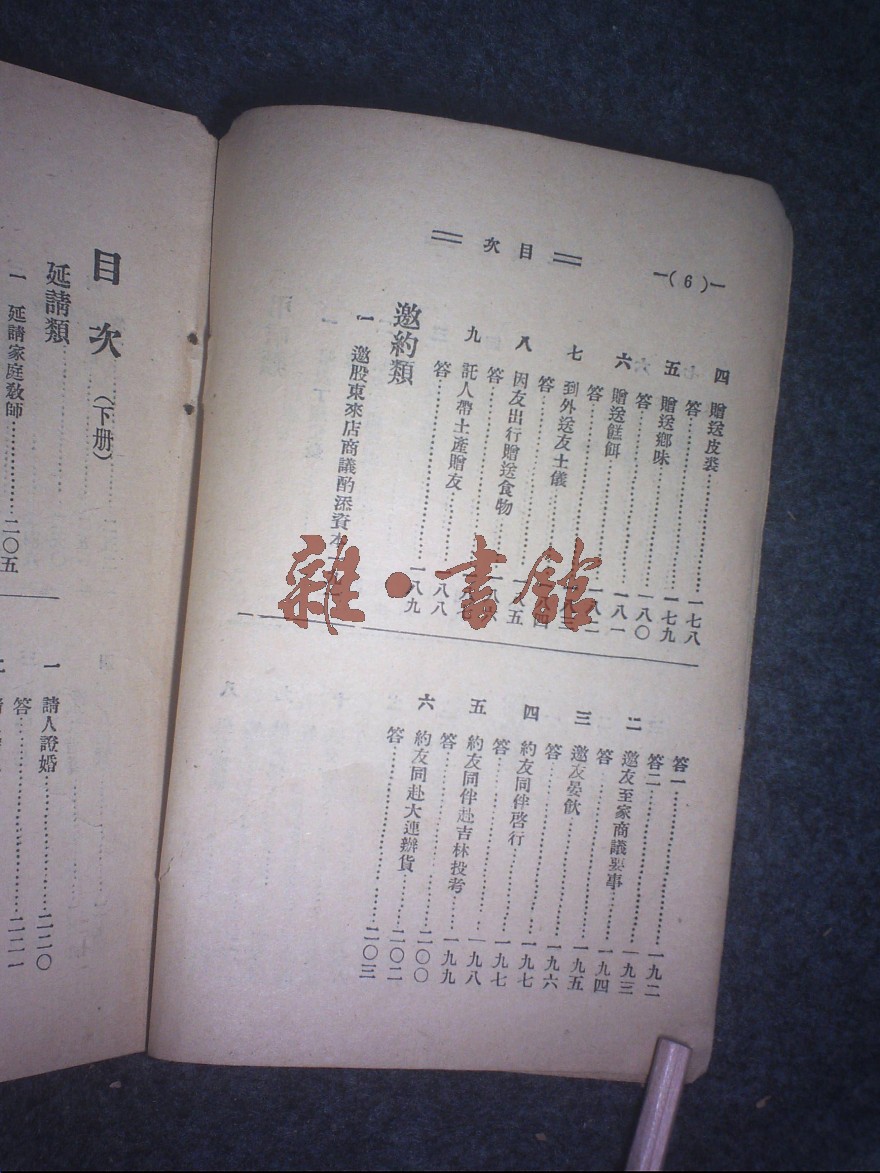 一( 6 )一
目次
四 贈送皮裘……一七八
答……一七九
五 贈送鄉味……一八〇
答……一八一
六 贈送餻餌……一八二
答……一八三
七 到外送友土儀……一八四
答……一八五
八 因友出行贈送食物……一八六
答……一八七
九 託人帶土產贈友……一八八
答……一八九
邀約類
一 邀股東來店商議酌添資本
答一……一九二
答二……一九三
二 邀友至家商議要事……一九四
答……一九五
三 邀友晏飲……一九六
答……一九七
四 約友同伴啓行……一九七
答……一九八
五 約友同伴赴吉林投考……一九九
答……二〇〇
六 約友同赴大連辦貨……二〇二
答……二〇三
目次(下册)
延請類
一 延請家庭敎師……二〇五
一 請人證婚……二二〇
答……二二一
雜·書館